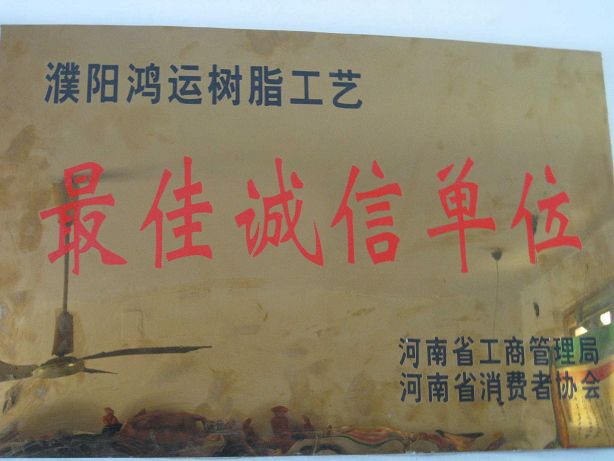 濮阳鸿运树脂工艺
最佳诚信单位
河南省工商管理局
河南省消费者协会